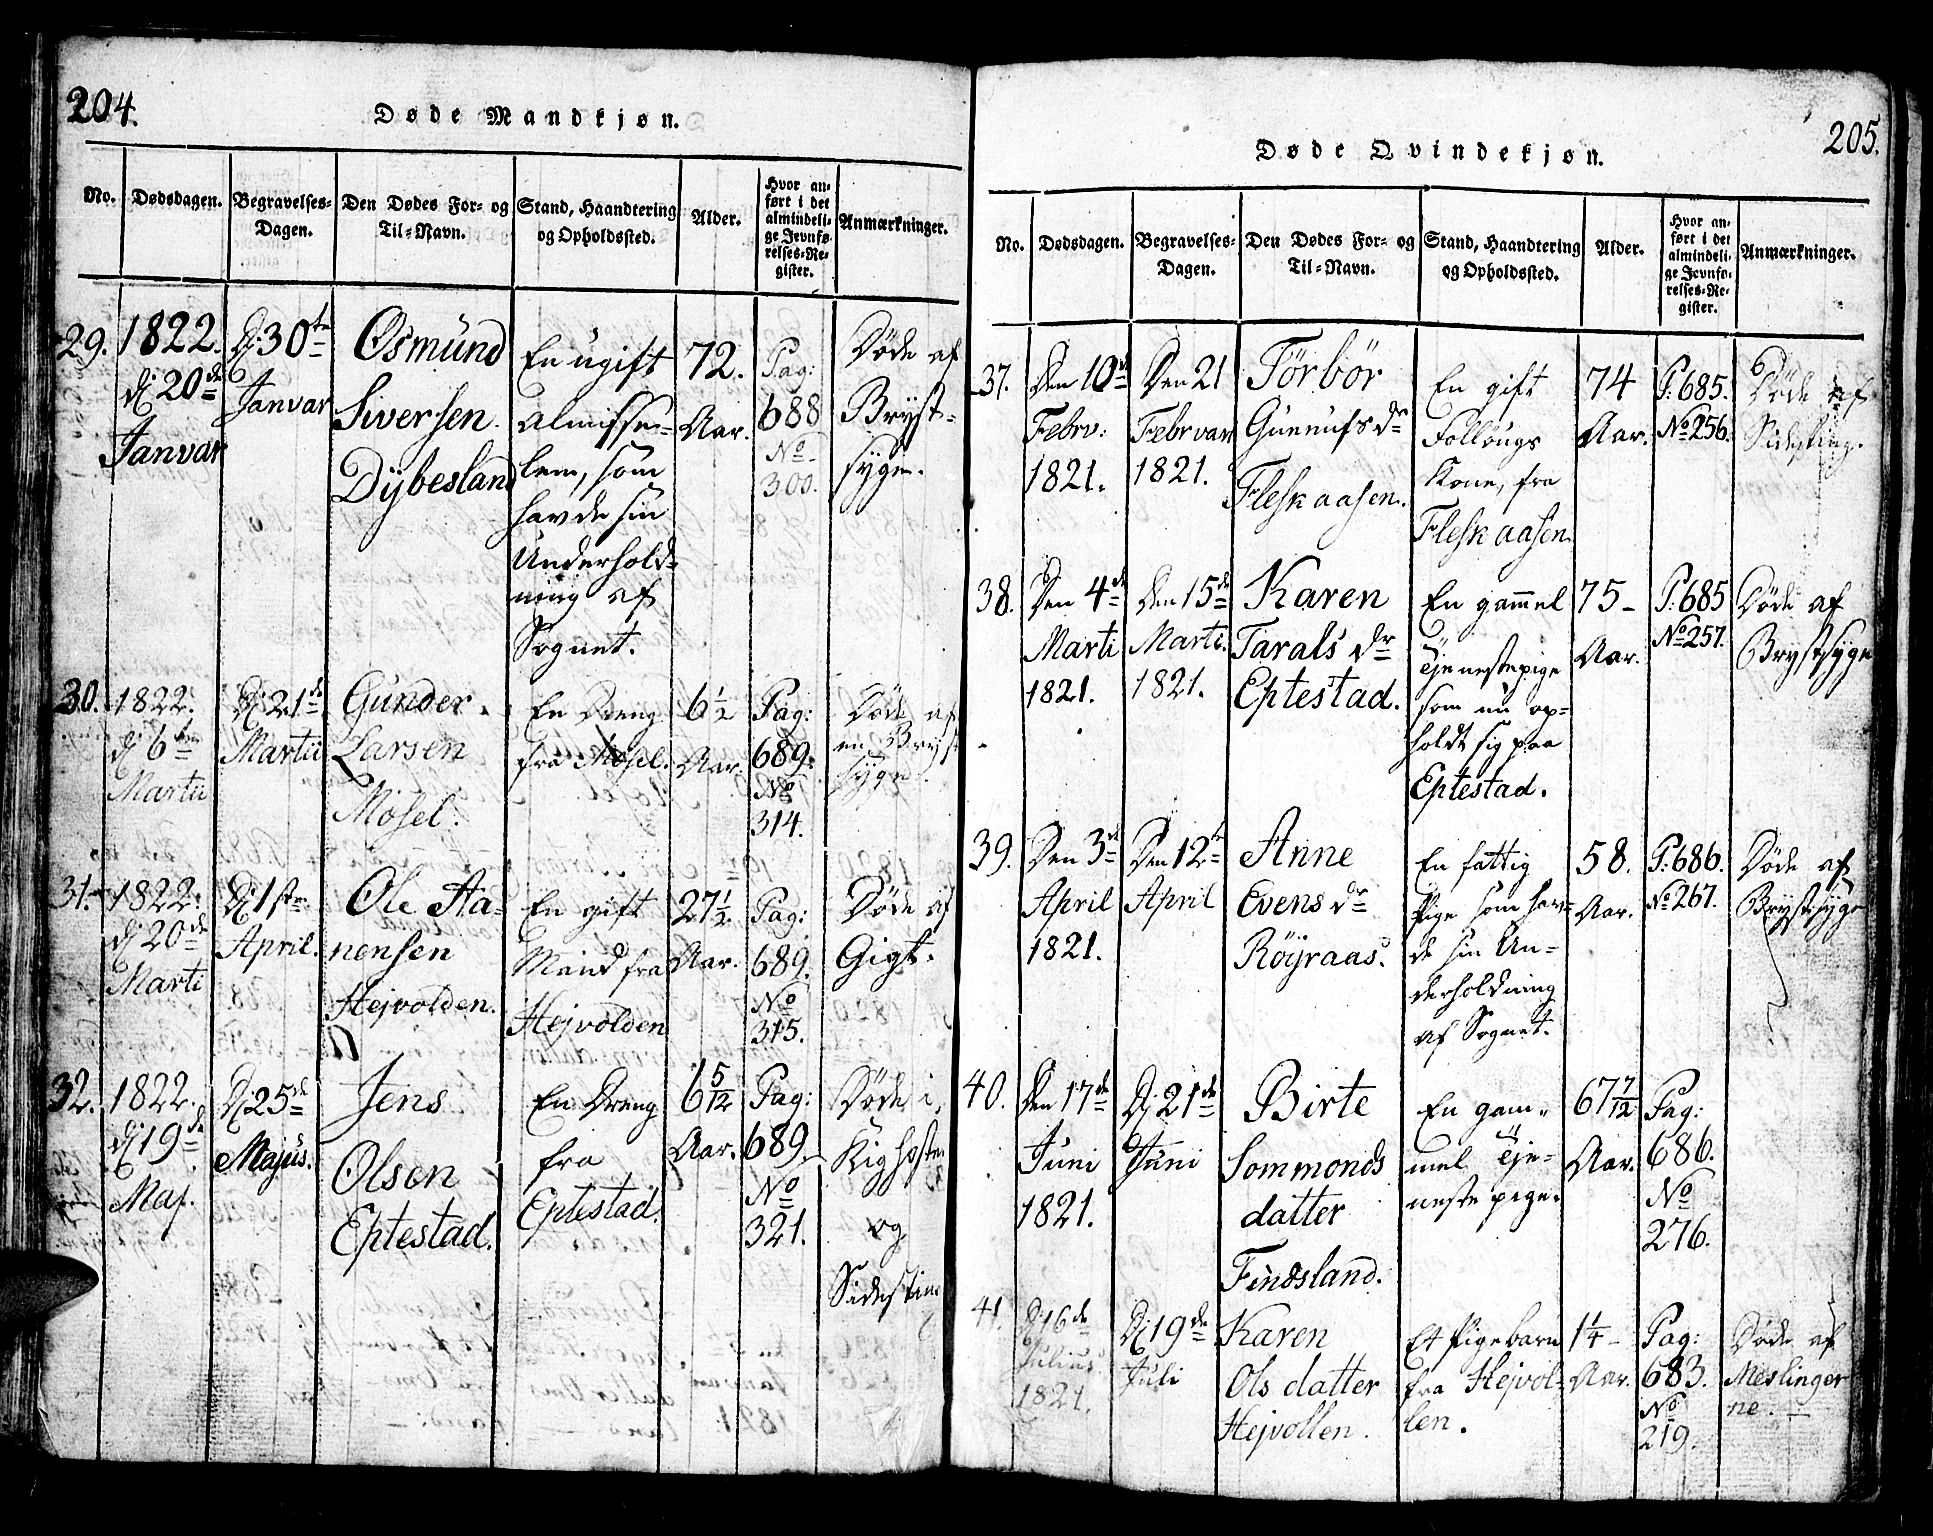 204.
Døde Mandkjøn.
No.
Dødsdagen.
Begravelses-
Dagen.
Den Dødes For- og
Til-Navn.
Stand, Haandtering
og Opholdssted.
Alder.
Hvor an-
ført i det
almindeli-
ge Jevnfø-
relses-Re-
gister.
Anmærkninger.
29.
1822.
dj 20de
Janvar
Dj 30te
Janvar
Osmünd
Siversen
Dÿbesland
En ugift
Almisse-
lem, som
havde sin
Underhold-
ning af
Sognet.
72.
Aar.
Pag:
688
No
300.
Døde af
Bryst-
syge.
30.
1822.
dj 6te
Martii
Dj 21de
Martii
Gunder
Larsen
Mosel.
En Dreng
fra Mosel.
6 1/2
Aar
Pag:
689.
No
314.
Døde af
en Bryst
syge
31.
1822.
dj 20de
Marti
Dj 1ste
April.
Ole Aa-
nensen
Hejvolden.
En gift
Mand fra
Hejvolden
27 1/2
Aar.
Pag:
689.
No
315.
Døde af
Gigt.
32.
1822.
dj 19de
Maj.
Dj 25de
Majus.
Jens
Olsen
Eptestad.
En Dreng
fra
Eptestad.
6 5/12
Aar.
Pag:
689.
No
321.
Døde i
Kighoste
og
Sidesting
205.
Døde Qvindekjøn.
No.
Dødsdagen.
Begravelses-
Dagen.
Den Dødes For- og
Til-Navn.
Stand, Haandtering
og Opholdssted.
Alder.
Hvor an-
ført i det
almindeli-
ge Jevnfø-
relses-Re-
gister.
Anmærkninger.
37.
Den 10de
Febrv:
1821.
Den 21
Febrvar
1821.
Törbör
Gunnufs dr
Fleskaasen.
En gift
Follougs
Kone, fra
Fleskaasen.
74
Aar.
P: 685.
No 256.
Døde af
Sidesting.
38.
Den 4de
Marti
1821.
Den 15de
Marti.
1821.
Karen
Tarals dr
Eptestad.
En gammel
Tjenestepige
som nu op-
holdt sig paa
Eptestad.
75-
Aar.
P: 685
No 257.
Døde af
Brystsyge
39.
Den 3de
April
1821.
Den 12te
April
Anne
Evens dr
Röÿraas.
En fattig
Pige som hav-
de sin Un-
derholdning
af Sognet.
58.
Aar.
P: 686.
No 267.
Døde af
Brystsyge
40.
Den 17de
Juni
1821.
Dj 21de
Juni
Birte
Sommonds
datter
Findsland.
En gam-
mel Tje-
nestepige.
67 7/12
Aar.
Pag:
686.
No
276.
41.
Dj 16de
Julius
1821.
Dj 19de
Juli
Karen
Ols datter
Hejvollen.
Et Pigebarn
fra Hejvol-
len.
1 1/4-
Aar.
Pag:
683.
No
219.
Døde af
Meslinger
ne.